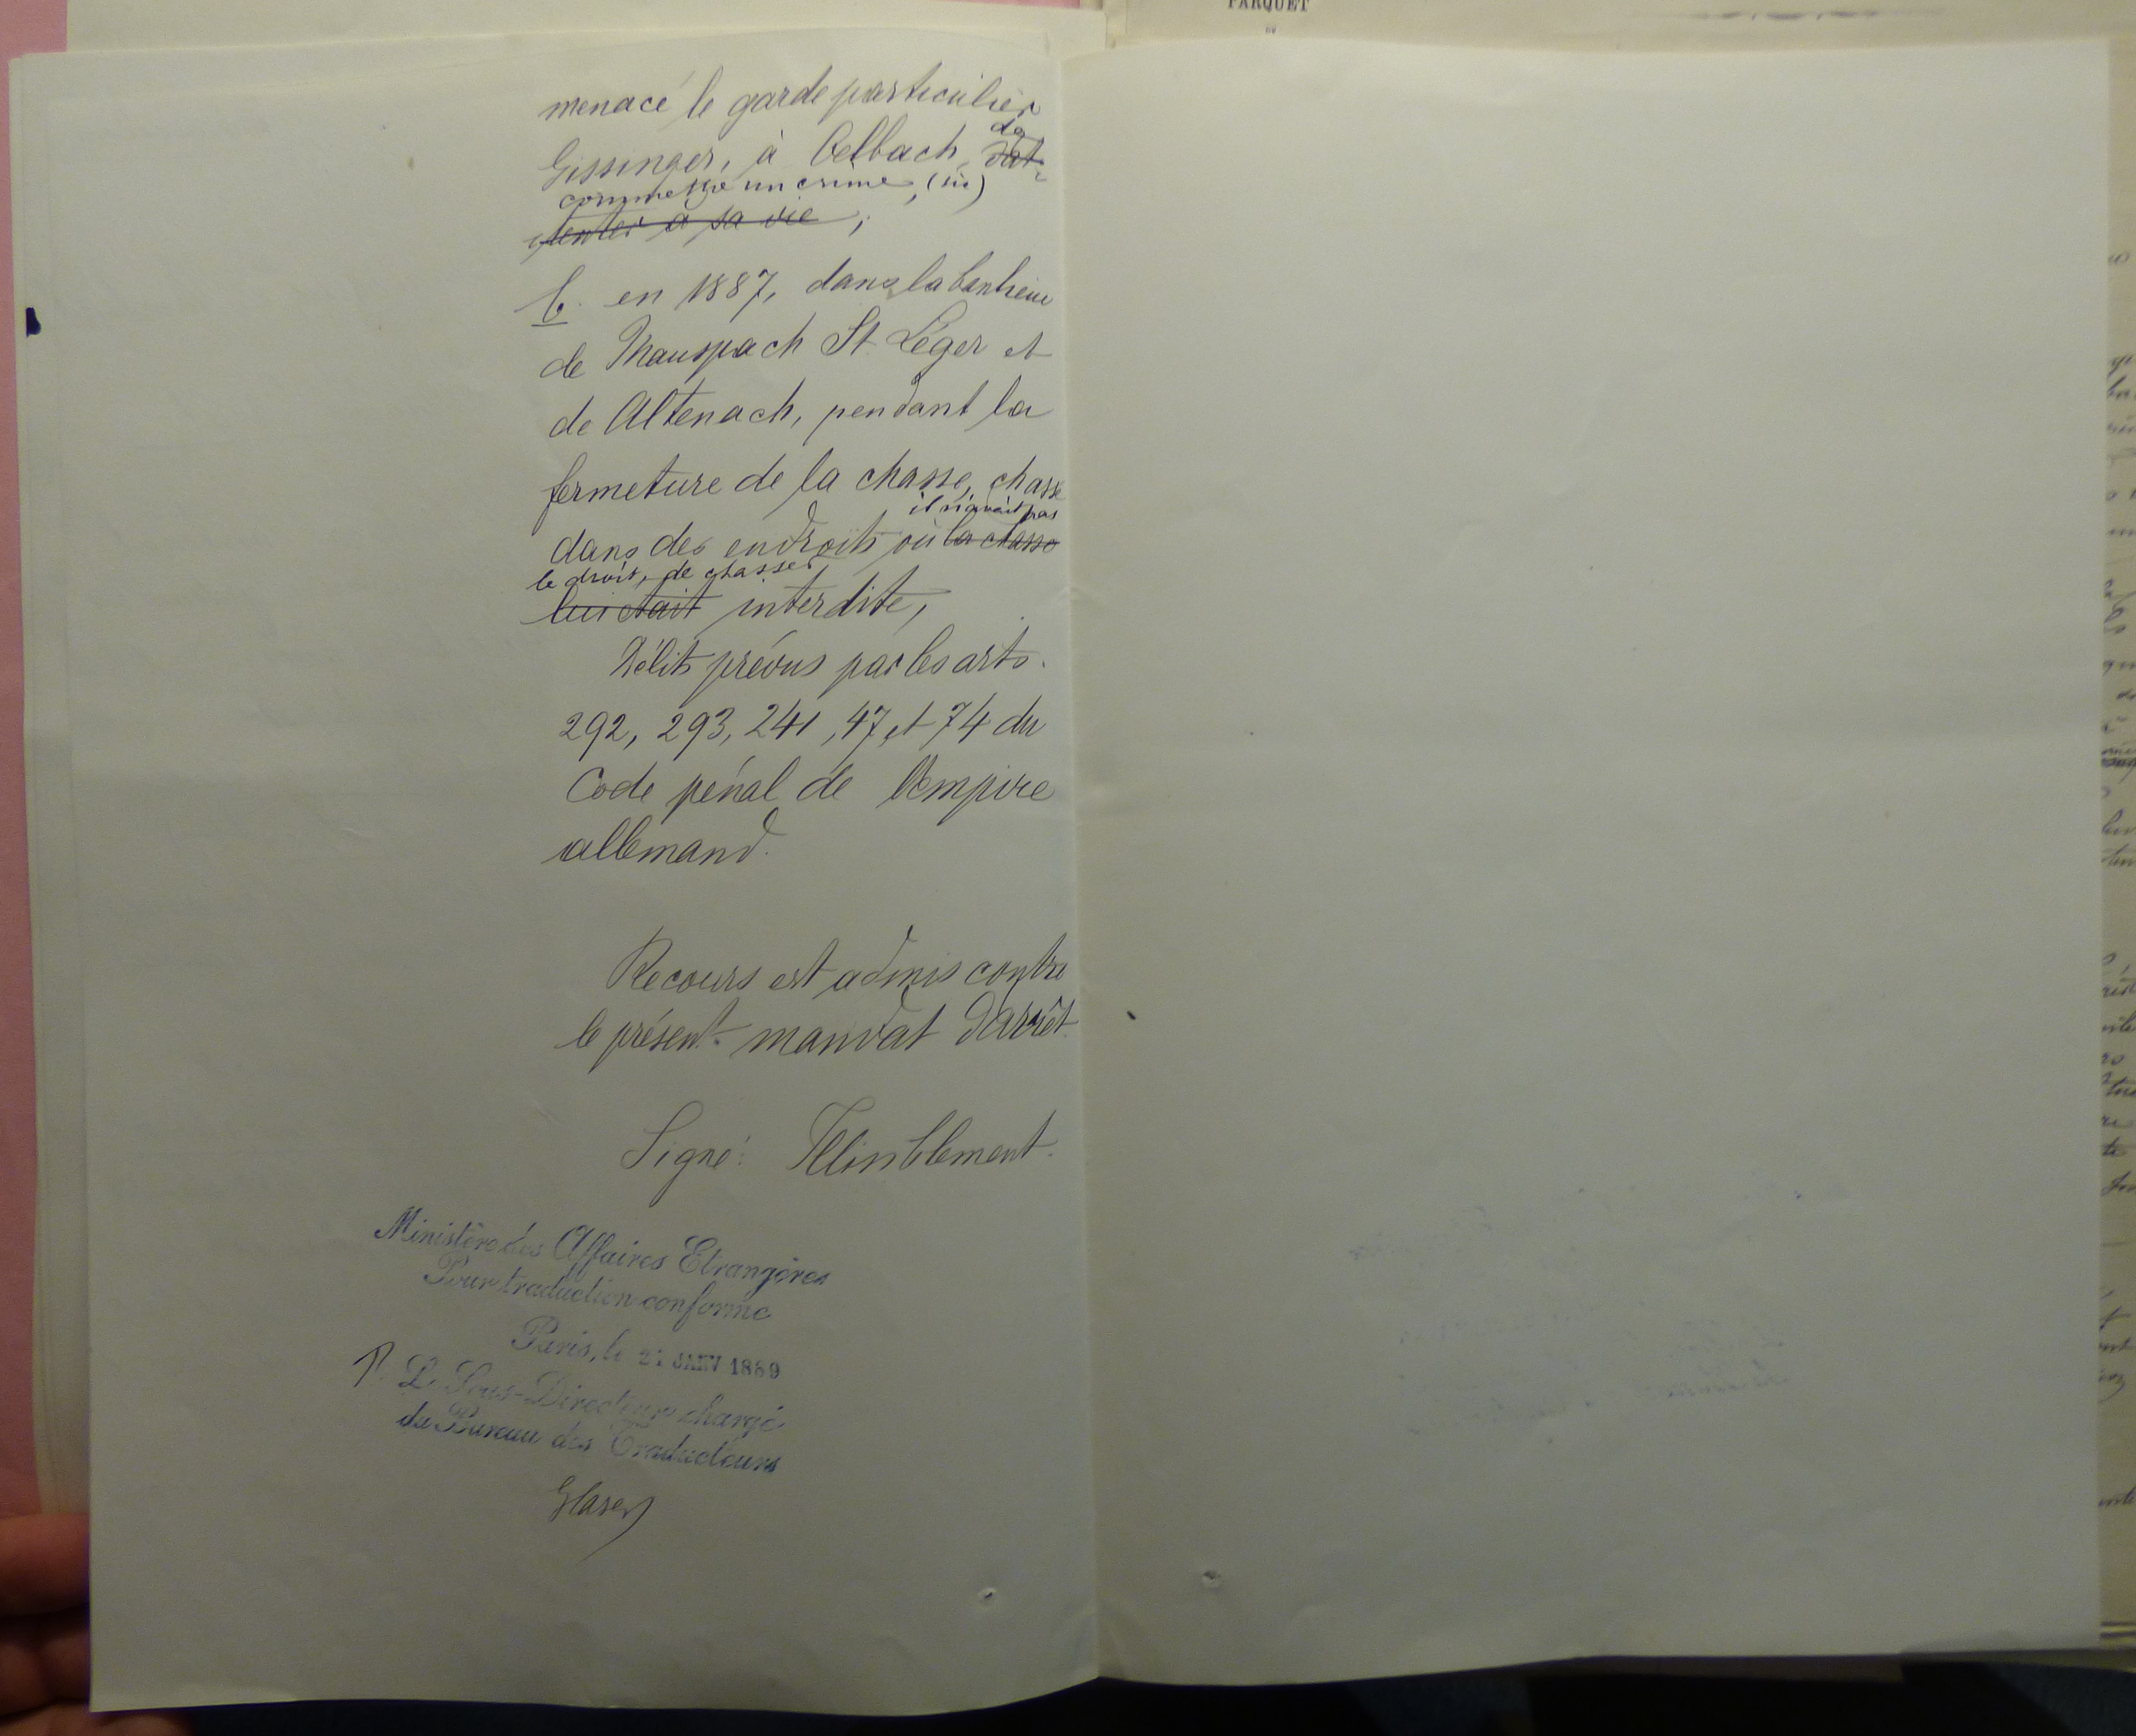 PARQUET
DU
menacé le garde particulier
Gissinger, à Oelbach, de d'at-
commettre un crime, (sic)
tenter à sa vie ;
b. en 1887, dans la banlieue
de Mauspach St. Léger et
de Altenach, pendant la
fermeture de la chasse, chassé
il n'avait pas
dans des endroits où la chasse
le droit, de chasser
lui était interdite,
Délits prévus par les arts.
292, 293, 241, 47 et 74 du
Code pénal de l'Empire
allemand.
Recours est admis contre
le présent mandat d'arrêt.
Signé:
Ministère des Affaires Etrangères
Pour traduction conforme
Paris, le JANV 1889
P. Le Sous-Directeur chargé
du Bureau des Traducteurs
Glaser